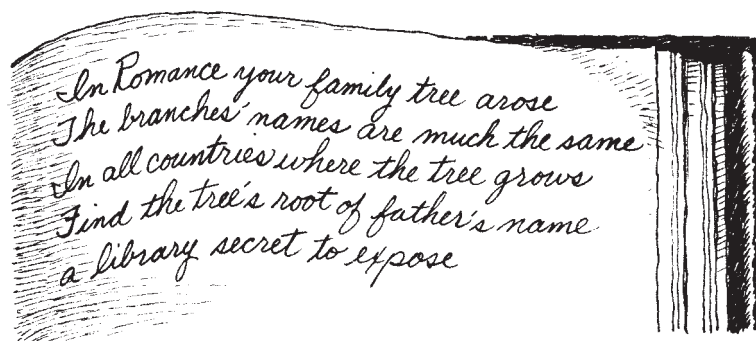 In Romance your family tree arose
The branches' names are much the same
In all countries where the tree grows
Find the tree's root of father's name
a library secret to expose